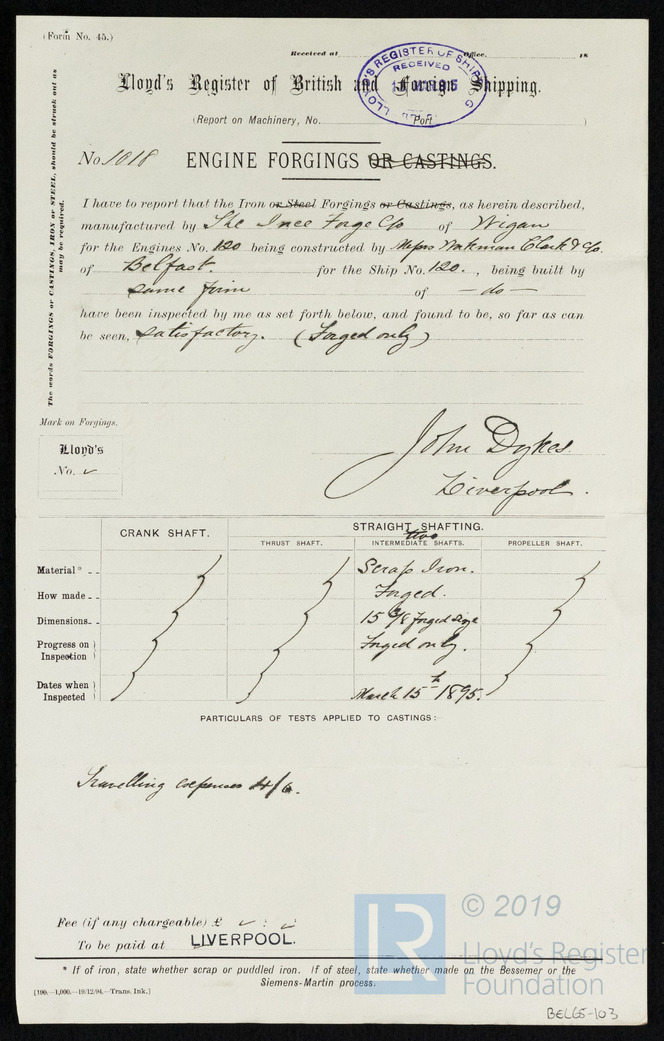 (Form No. 45.)
Received at Office, 18
LLOYD'S REGISTER OF SHIPPING RECEIVED
Lloyd's Register of British and Foreign Shipping.
(Report on Machinery, No. Port )
No 1018 ENGINE FORGINGS OR CASTINGS.
The words FORGINGS or CASTINGS, IRON or STEEL, should be struck out as
may be required.
I have to report that the Iron or Steel Forgings or Castings, as herein described,
manufactured by The Ince Forge Co of Wigan
for the Engines No. 120 being constructed by Messrs Workman Clark & Co.
of Belfast. for the Ship No. 120. , being built by
same firm of — do —
have been inspected by me as set forth below, and found to be, so far as can
be seen, satisfactory. (Forged only)
Mark on Forgings.
Lloyd's
No. ✓
John Dykes.
Liverpool.
CRANK SHAFT. STRAIGHT SHAFTING.
THRUST SHAFT. two INTERMEDIATE SHAFTS. PROPELLER SHAFT.
Material* Scrap Iron.
How made Forged.
Dimensions 15 3/8 Forged size
Progress on Inspection Forged only.
Dates when Inspected March 15th 1895.
PARTICULARS OF TESTS APPLIED TO CASTINGS:—
Travelling expenses 4/6.
Fee (if any chargeable) £ ✓ : ✓
To be paid at LIVERPOOL.
* If of iron, state whether scrap or puddled iron. If of steel, state whether made on the Bessemer or the
Siemens-Martin process.
[190.—1,000.—19/12/94.—Trans. Ink.]
LR © 2019
Lloyd's Register
Foundation
BEL65-103